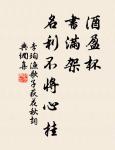 酒盈杯
書滿架
名利不將心挂
李珣漁歌子荻花秋詞
典樌集